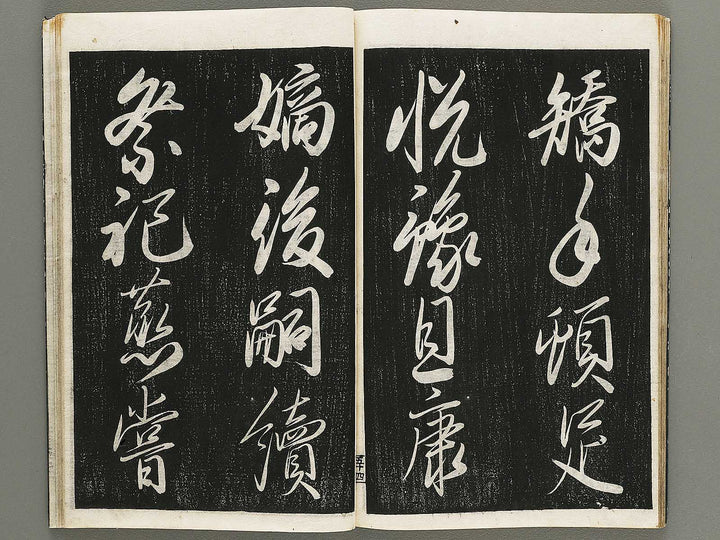 矯手頓足
悦豫且康
嫡後嗣續
祭祀蒸嘗
五十四